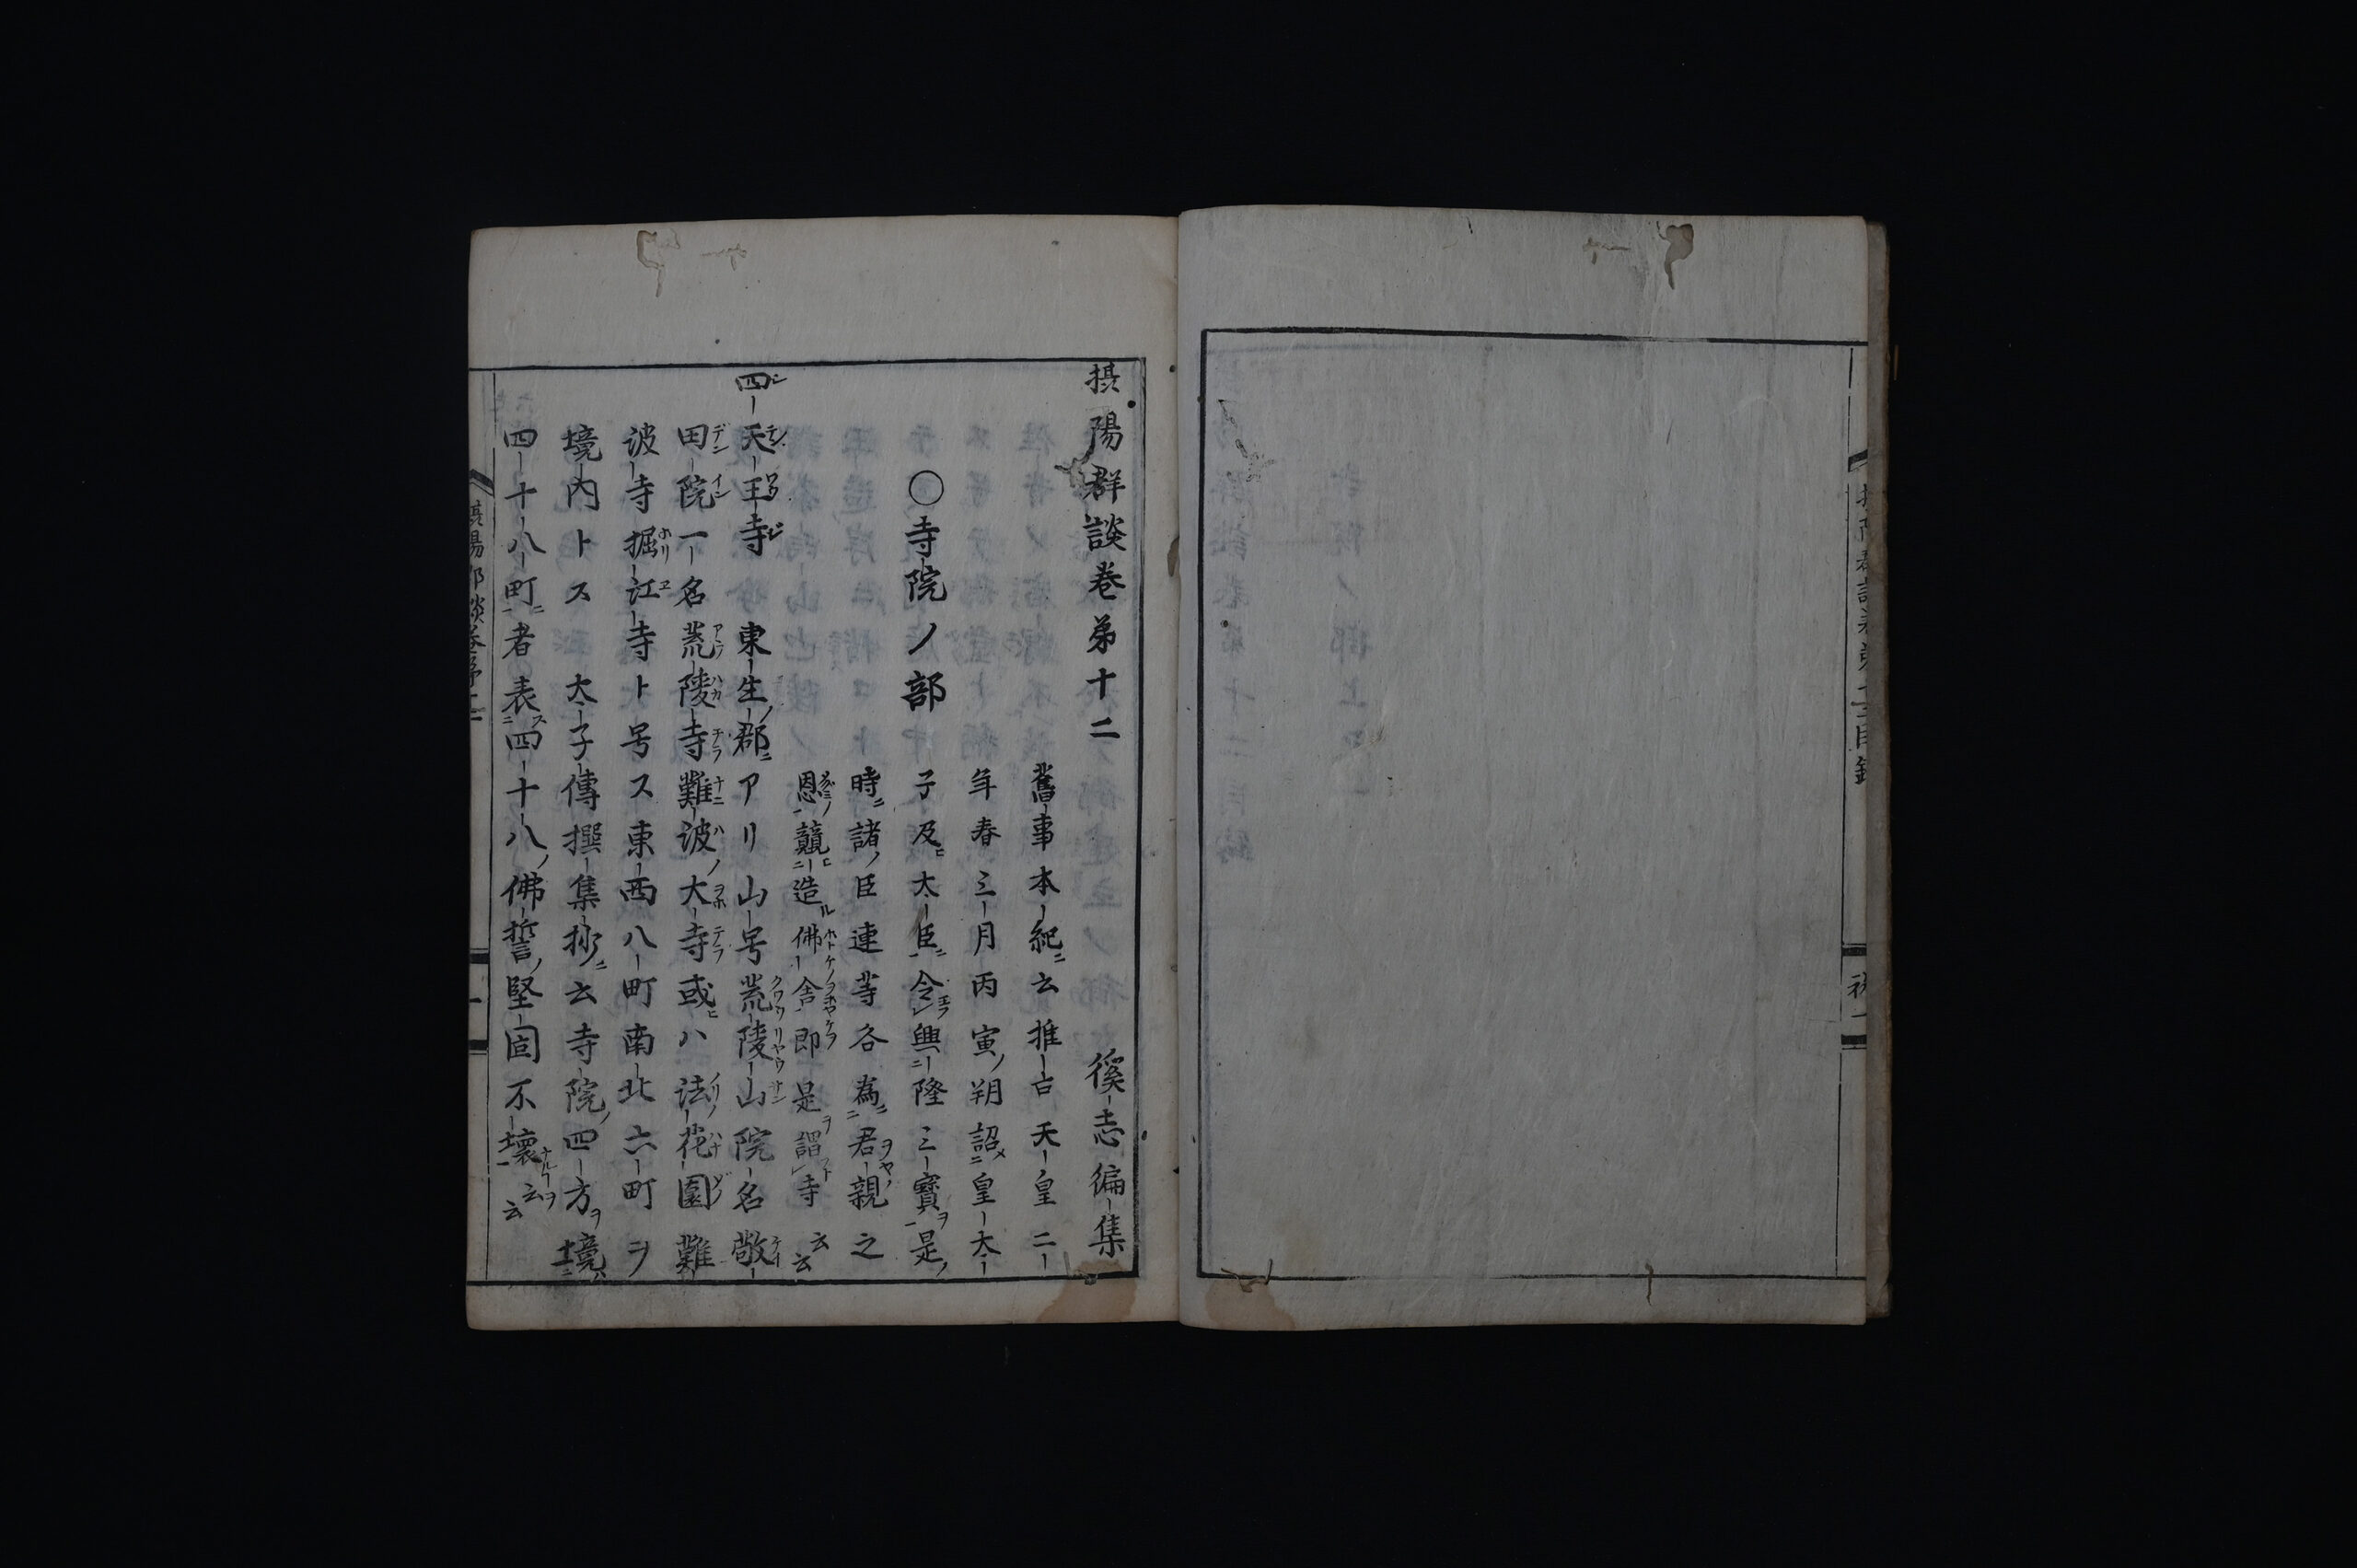 摂陽群談巻第十二 徯志編集
舊事本紀云推古天皇二
年春三月丙寅朔詔皇太
○寺院ノ部 子及大臣令興隆三寳是
時諸臣連等各為君親之
恩競造佛舎即是謂寺云云
四天王寺 東生郡ニアリ山号荒陵山院名敬
田院一名荒陵寺難波大寺或ハ法花園難
波寺掘江寺ト号ス東西八町南北六町ヲ
境内トス太子傳撰集抄云寺院四方境
四十八町者表四十八佛誓堅固不壊云云